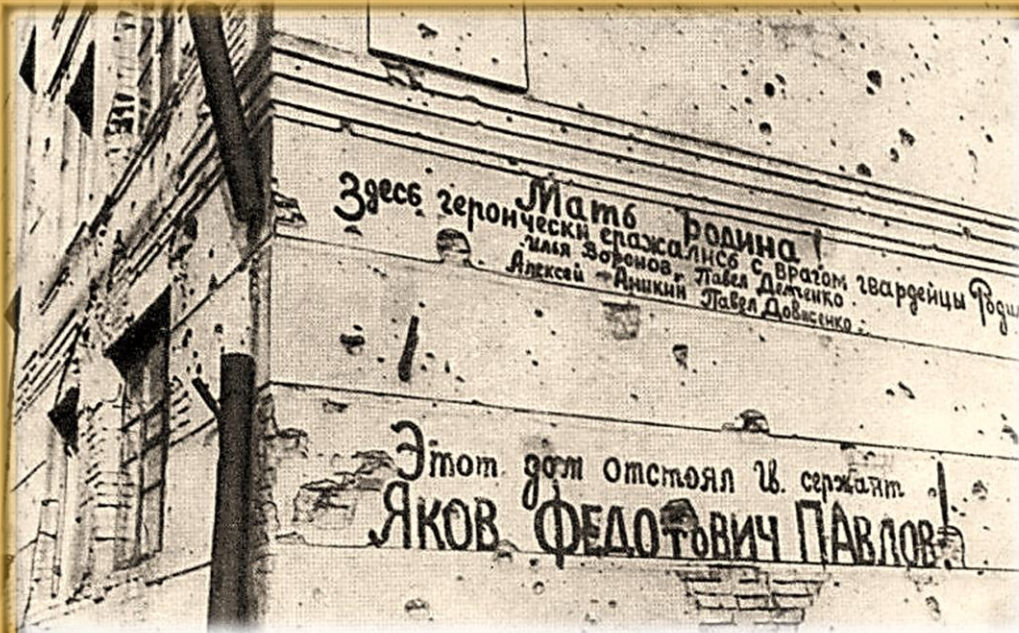 Мать Родина!
Здесь героически сражались с врагом гвардейцы
Илья Воронов, Павел Демченко
Алексей Аникин Павел Довисенко.
Этот дом отстоял гв. сержант
ЯКОВ ФЕДОТОВИЧ ПАВЛОВ!